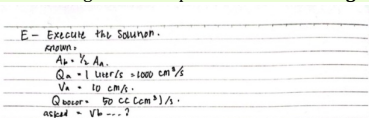 E - Execute the Solution.
known:
Ab = 1/2 Aa.
Qa = 1 liter/s = 1000 cm³/s
Va = 10 cm/s.
Q bocor = 50 cc (cm³)/s.
asked = Vb ...?